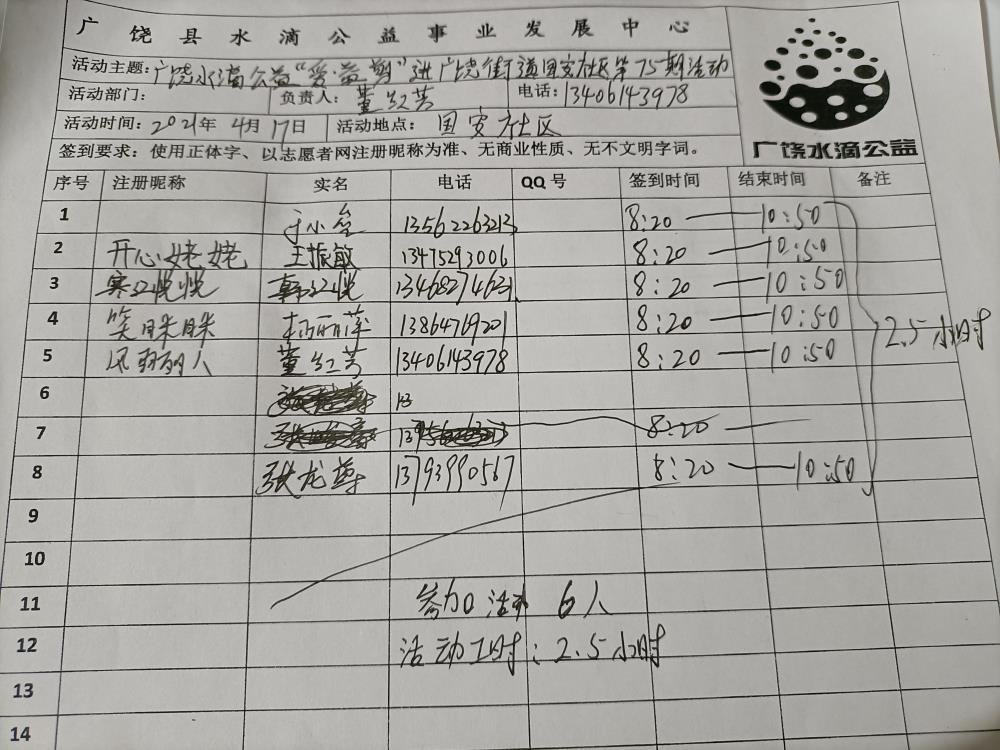 广饶县水滴公益事业发展中心
活动主题:广饶水滴公益“爱·益剪”进广饶街道国安社区第75期活动
活动部门: 负责人: 董红芳 电话: 13406143978
活动时间: 2021年 4月 17日 活动地点: 国安社区
签到要求: 使用正体字、以志愿者网注册昵称为准、无商业性质、无不文明字词。
广饶水滴公益
序号 注册昵称 实名 电话 QQ号 签到时间 结束时间 备注
1 于小 13562263213 8:20 — 10:50
2 开心姥姥 王振敏 13475293006 8:20 — 10:50
3 寒江悦悦 韩江悦 13468274631 8:20 — 10:50
4 笑眯眯 杨丽萍 13864769201 8:20 — 10:50
2.5小时
5 风丽人 董红芳 13406143978 8:20 — 10:50
6 13
7 8:20 —
8 张龙尊 13793990567 8:20 — 10:50
9
10
11 参加活动 6人
12 活动工时: 2.5小时
13
14